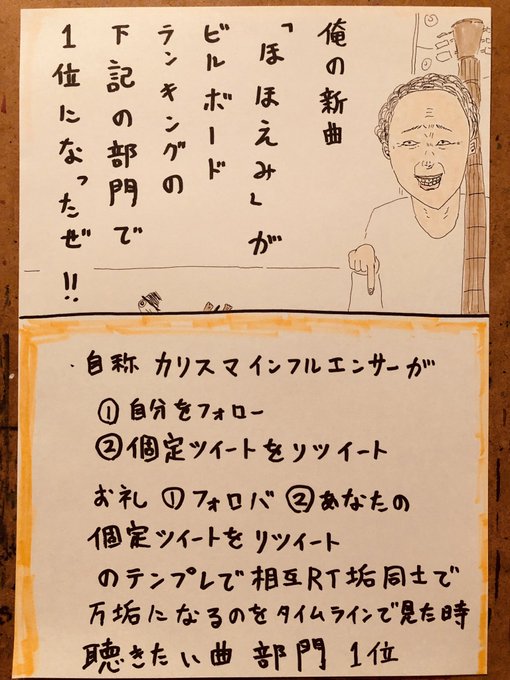 俺の新曲
「ほほえみ」が
ビルボード
ランキングの
下記の部門で
1位になったぜ!!
・自称 カリスマインフルエンサーが
①自分をフォロー
②個定ツイートをリツイート
お礼 ①フォロバ ②あなたの
個定ツイートをリツイート
のテンプレで相互RT垢同士で
万垢になるのをタイムラインで見た時
聴きたい曲 部門 1位